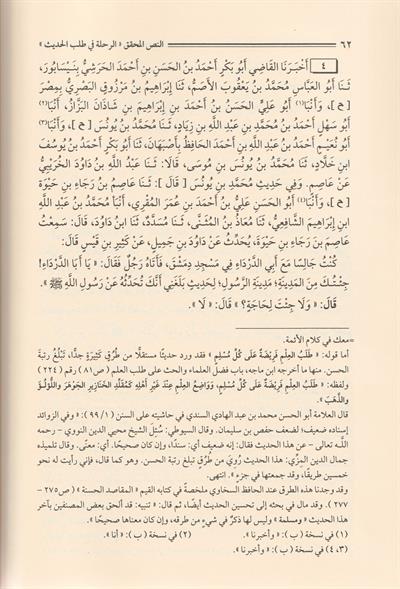 ٦٢ النص المحقق « الرحلة في طلب الحديث »
٤ أَخْبَرَنَا القَاضِي أَبُو بَكْرٍ أَحْمَدُ بْنُ الحَسَنِ بنِ أَحْمَدَ الحَرَشِيُّ بِنَيْسَابُورَ،
ثَنَا أَبُو العَبَّاسِ مُحَمَّدُ بْنُ يَعْقُوبَ الأَصَمُّ، ثَنَا إِبْرَاهِيمُ بنُ مَرْزُوقٍ البَصْرِيُّ بِمِصْرَ
[ ح ]، وَأَنْبَا(١) أَبُو عَلِيٍّ الحَسَنُ بْنُ أَحْمَدَ بنِ إِبْرَاهِيمَ بنِ شَاذَانَ البَزَّازُ، أَنْبَا(٢)
أَبُو سَهْلٍ أَحْمَدُ بْنُ مُحَمَّدِ بنِ عَبْدِ اللَّهِ بنِ زِيَادٍ، ثَنَا مُحَمَّدُ بْنُ يُونُسَ [ ح ]، وَأَنْبَا(٣)
أَبُو نُعَيْمٍ أَحْمَدُ بْنُ عَبْدِ اللَّهِ بنِ أَحْمَدَ الحَافِظُ بِأَصْبَهَانَ، ثَنَا أَبُو بَكْرٍ أَحْمَدُ بْنُ يُوسُفَ
ابنِ خَلَّادٍ، ثَنَا مُحَمَّدُ بْنُ يُونُسَ بنِ مُوسَى، قَالَا: ثَنَا عَبْدُ اللَّهِ بْنُ دَاوُدَ الخُرَيْبِيُّ
عَنْ عَاصِمٍ. وَفِي حَدِيثِ مُحَمَّدِ بْنِ يُونُسَ [ قَالَ ]: ثَنَا عَاصِمُ بْنُ رَجَاءِ بنِ حَيْوَةَ
[ ح ]، وَأَنْبَا(٤) أَبُو الحَسَنِ عَلِيُّ بْنُ أَحْمَدَ بنِ عُمَرَ المُقْرِي، أَنْبَا مُحَمَّدُ بْنُ عَبْدِ اللَّهِ
ابنِ إِبْرَاهِيمَ الشَّافِعِيُّ، ثَنَا مُعَاذُ بْنُ المُثَنَّى، ثَنَا مُسَدَّدٌ، ثَنَا ابْنُ دَاوُدَ، قَالَ: سَمِعْتُ
عَاصِمَ بنَ رَجَاءِ بنِ حَيْوَةَ، يُحَدِّثُ عَنْ دَاوُدَ بنِ جَمِيلٍ، عَنْ كَثِيرِ بنِ قَيْسٍ قَالَ:
كُنْتُ جَالِسًا مَعَ أَبِي الدَّرْدَاءِ فِي مَسْجِدِ دِمَشْقَ، فَأَتَاهُ رَجُلٌ فَقَالَ: « يَا أَبَا الدَّرْدَاءِ!
جِئْتُكَ مِنَ المَدِينَةِ؛ مَدِينَةِ الرَّسُولِ؛ لِحَدِيثٍ بَلَغَنِي أَنَّكَ تُحَدِّثُهُ عَنْ رَسُولِ اللَّهِ ﷺ ».
قَالَ: « وَلَا جِئْتَ لِحَاجَةٍ؟ » قَالَ: « لَا ».
=معك في كلام الأئمة.
أما قوله: « طَلَبُ العِلْمِ فَرِيضَةٌ عَلَى كُلِّ مُسْلِمٍ » فقد ورد حديثًا مستقلًّا من طُرُقٍ كَثِيرَةٍ جدًّا، تَبْلُغُ رتبةَ
الحسن. منها ما أخرجه ابن ماجه، باب فضل العلماء والحث على طلب العلم (ص٨١) رقم (٢٢٤)
ولفظه: « طَلَبُ العِلْمِ فَرِيضَةٌ عَلَى كُلِّ مُسْلِمٍ، وَوَاضِعُ العِلْمِ عِنْدَ غَيْرِ أَهْلِهِ كَمُقَلِّدِ الخَنَازِيرِ الجَوْهَرَ وَاللُّؤْلُؤَ
وَالذَّهَبَ ».
قال العلامة أبو الحسن محمد بن عبد الهادي السندي في حاشيته على السنن (١/ ٩٩): « وفي الزوائد
إسناده ضعيف؛ لضعف حفص بن سليمان. وقال السيوطي: سُئِلَ الشيخ محيي الدين النووي - رحمه
اللَّه تعالى - عن هذا الحديث فقال: إنه ضعيف أي: سندًا، وإن كان صحيحًا. أي: معنًى. وقال تلميذه
جمال الدين المِزِّي: هذا الحديث رُوِيَ من طُرُقٍ تبلغ رتبة الحسن. وهو كما قال، فإني رأيت له نحو
خمسين طريقًا، وقد جمعتها في جزء ». انتهى.
وقد وجدنا هذه الطرق عند الحافظ السخاوي ملخصةً في كتابه القيم « المقاصد الحسنة » (ص٢٧٥-
٢٧٧ ). وقد مال في بحثه إلى تحسين الحديث أيضًا، ثم قال: « تنبيه: قد ألحق بعض المصنفين بآخر
هذا الحديث « ومسلمة » وليس لها ذكرٌ في شيءٍ من طرقه، وإن كان معناها صحيحًا ».
(١) في نسخة ( ب ): « وأخبرنا ». (٢) في نسخة ( ب ): « أنا ».
(٣، ٤) في نسخة ( ب ): « وأخبرنا ».